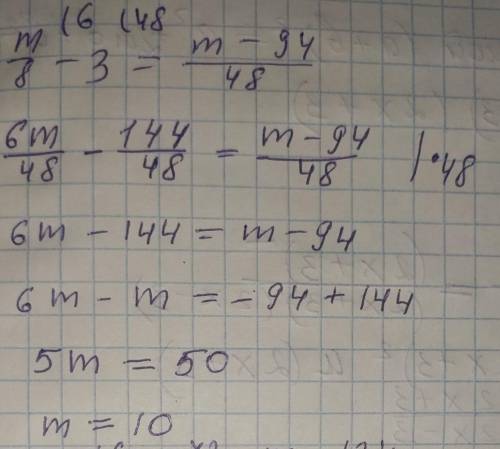 (6 (48
m/8 - 3 = m - 94/48
6m/48 - 144/48 = m - 94/48 |·48
6m - 144 = m - 94
6m - m = -94 + 144
5m = 50
m = 10